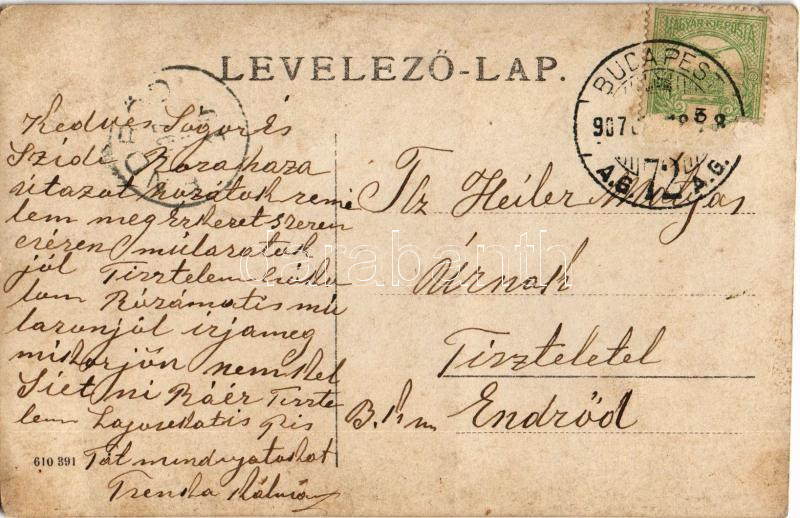 LEVELEZŐ-LAP.
MAGYAR KIR. POSTA
BUDAPEST
907
A.G. A.G.
Kedves Sógor És
Szidi Rozahaza
útazot hozátok remé
lem megérkeret szeren
csézen múlaratok
jól Tisztelem
lom Rózámatis mú
laronjól irjameg
mikorjön nemkel
Siet ni Ráér Tiszte
lem Lajosekatis
Tót mindnyatokat
Trenka Kálmán
Tlz Heiler Mátyás
Úrnak
Tiszteletel
B. Endrőd
610 391
darabanth